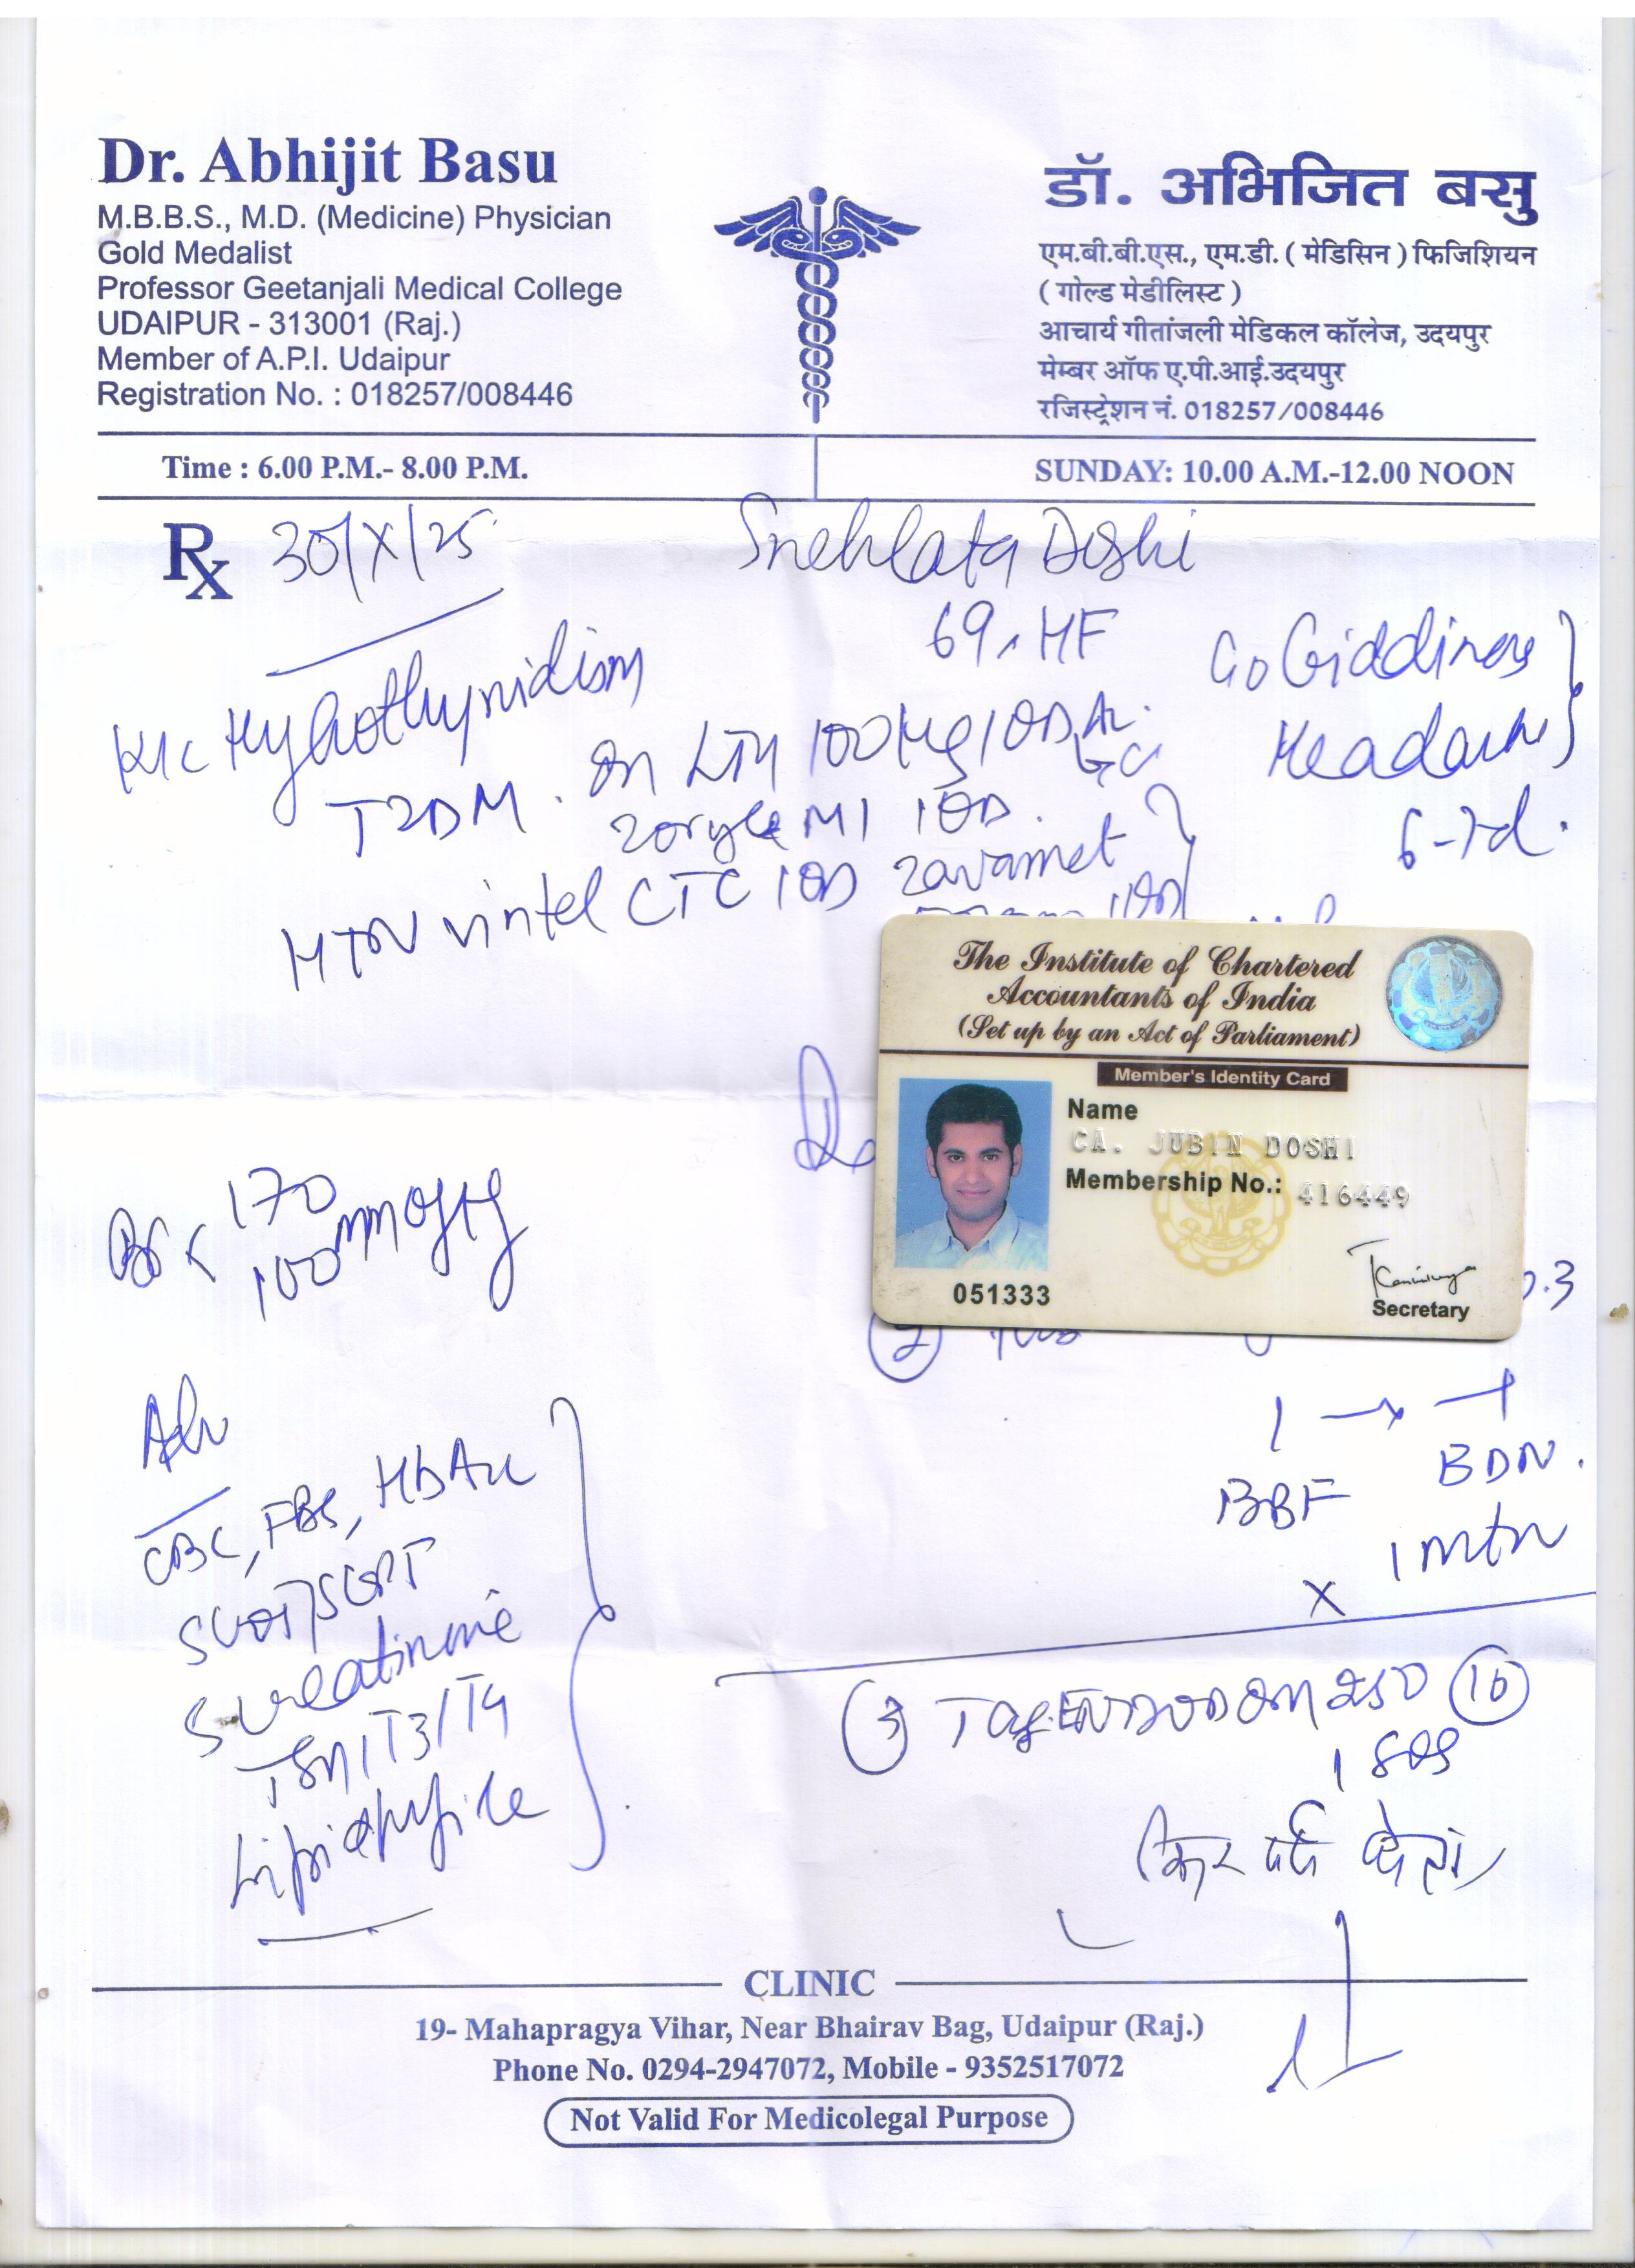 Dr. Abhijit Basu
M.B.B.S., M.D. (Medicine) Physician
Gold Medalist
Professor Geetanjali Medical College
UDAIPUR - 313001 (Raj.)
Member of A.P.I. Udaipur
Registration No. : 018257/008446
डॉ. अभिजित बसु
एम.बी.बी.एस., एम.डी. ( मेडिसिन ) फिजिशियन
( गोल्ड मेडीलिस्ट )
आचार्य गीतांजली मेडिकल कॉलेज, उदयपुर
मेम्बर ऑफ ए.पी.आई.उदयपुर
रजिस्ट्रेशन नं. 018257/008446
Time : 6.00 P.M.- 8.00 P.M.
SUNDAY: 10.00 A.M.-12.00 NOON
Rx 30/X/25 Snehlata Doshi
69
Giddiness
Headache
6-7d.
Hypothyroidism
T2DM. On 100
M1 1OD.
HTN vintel CTC 1OD zavamet
The Institute of Chartered
Accountants of India
(Set up by an Act of Parliament)
Member's Identity Card
Name
CA. JUBIN DOSHI
Membership No.: 416449
051333
Secretary
170
100 mm of Hg
2
1 → 1
BBF BDN.
x 1 mth
Adv
CBC, FBS, HbA1c
SGOT/SGPT
S creatinine
TSH/T3/T4
Lipid profile
3 250 10
1 SOS
CLINIC
19- Mahapragya Vihar, Near Bhairav Bag, Udaipur (Raj.)
Phone No. 0294-2947072, Mobile - 9352517072
Not Valid For Medicolegal Purpose